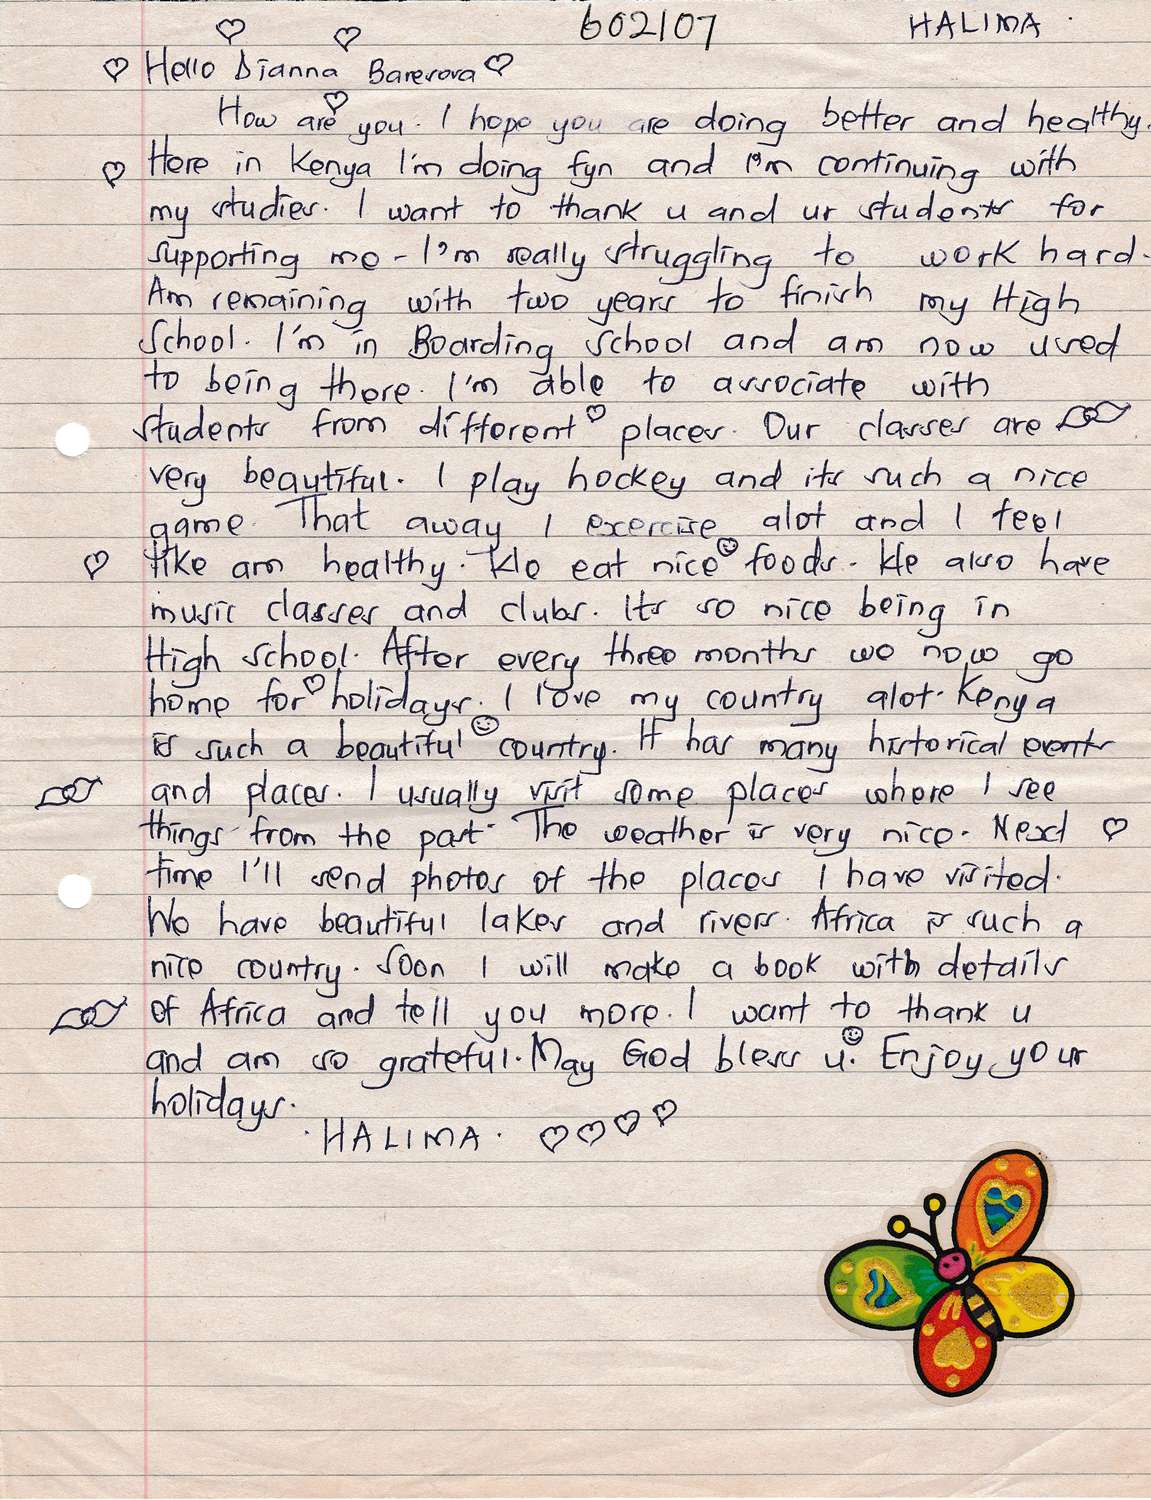 602/07 HALIMA
Hello Dianna Baresova
How are you. I hope you are doing better and healthy.
Here in Kenya I'm doing fyn and I'm continuing with
my studies. I want to thank u and ur students for
supporting me - I'm really struggling to work hard.
Am remaining with two years to finish my High
School. I'm in Boarding school and am now used
to being there. I'm able to associate with
students from different places. Our classes are
very beautiful. I play hockey and its such a nice
game. That away I exercise alot and I feel
like am healthy. We eat nice foods. We also have
music classes and clubs. Its so nice being in
High school. After every three months we now go
home for holidays. I love my country alot. Kenya
is such a beautiful country. It has many historical events
and places. I usually visit some places where I see
things from the past. The weather is very nice. Next
time I'll send photos of the places I have visited.
We have beautiful lakes and rivers. Africa is such a
nice country. Soon I will make a book with details
of Africa and tell you more. I want to thank u
and am so grateful. May God bless u. Enjoy your
holidays.
. HALIMA .